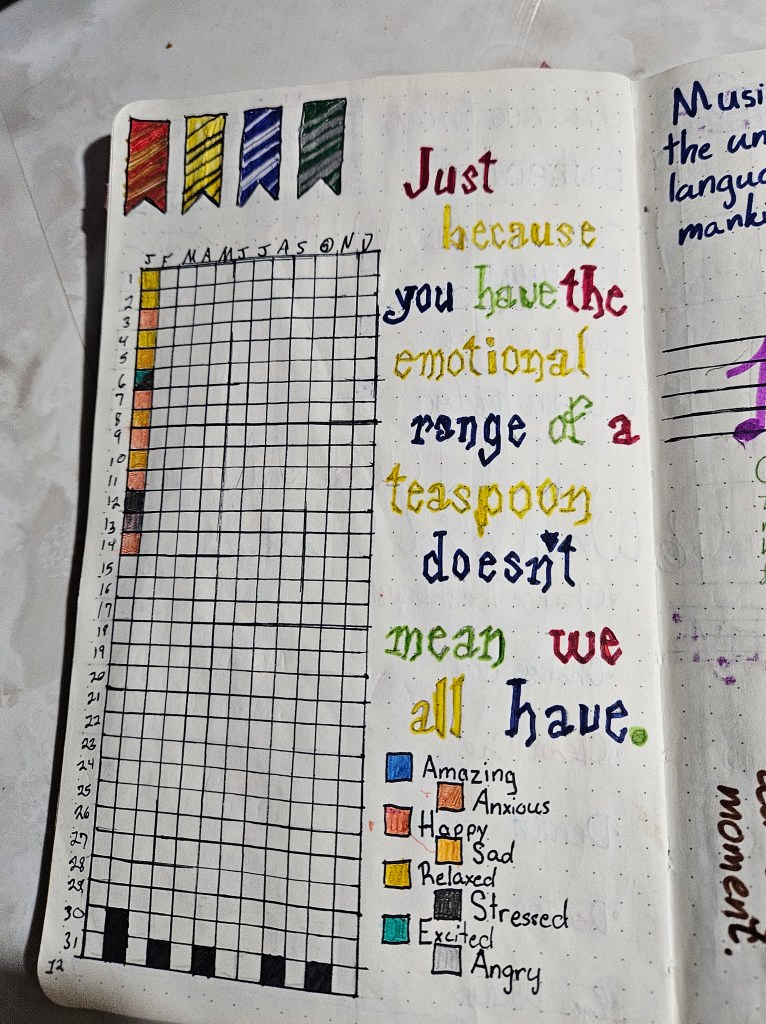 J F M A M J J A S O N D
1
2
3
4
5
6
7
8
9
10
11
12
13
14
15
16
17
18
19
20
21
22
23
24
25
26
27
28
29
30
31
Just
because
you have the
emotional
range of a
teaspoon
doesn't
mean we
all have.
Amazing
Anxious
Happy
Sad
Relaxed
Stressed
Excited
Angry
Musi
the un
langua
manki
moment.